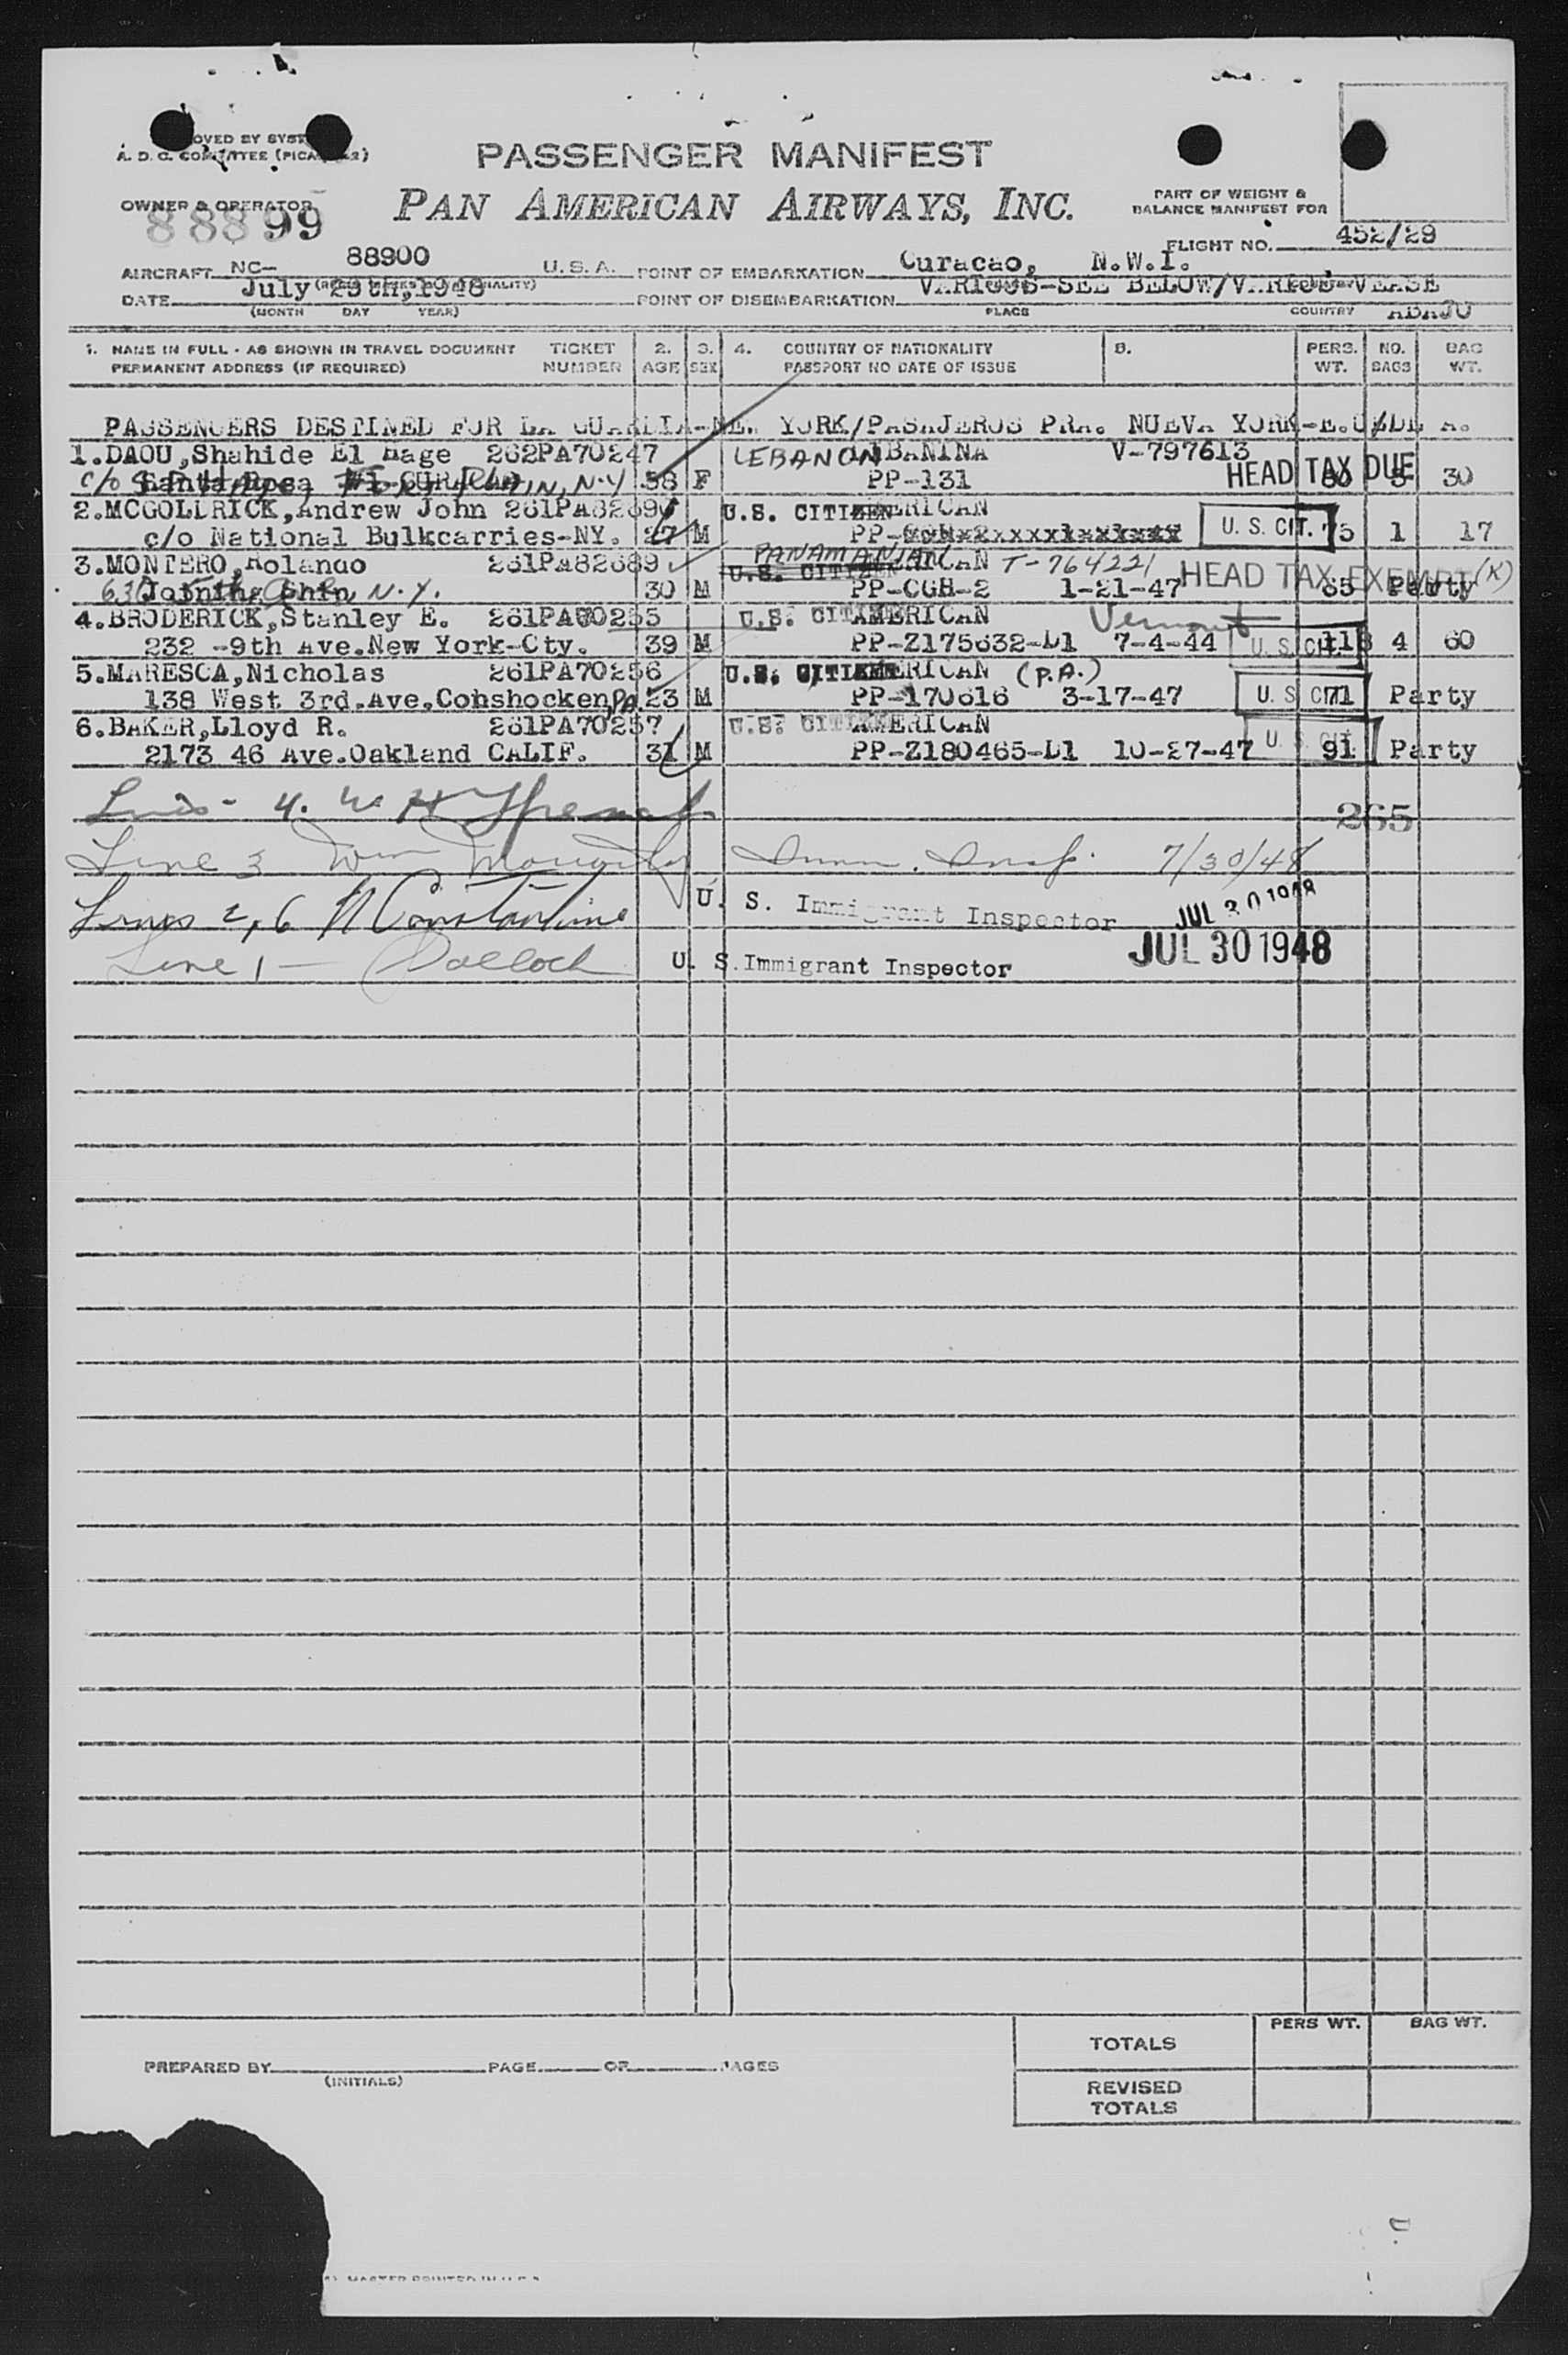 OVED BY SYST
A. D. C. COMMITTEE (PICA
PASSENGER MANIFEST
OWNER & OPERATOR
88899
PAN AMERICAN AIRWAYS, INC.
PART OF WEIGHT &
BALANCE MANIFEST FOR
FLIGHT NO. 452/29
AIRCRAFT NC- 88900 U.S.A. POINT OF EMBARKATION Curacao, N.W.I.
DATE July 29th,1948 POINT OF DISEMBARKATION VARIOUS-SEE BELOW/VARIOS-VEASE
(MONTH DAY YEAR) PLACE COUNTRY ABAJO
1. NAME IN FULL - AS SHOWN IN TRAVEL DOCUMENT TICKET 2. 3. 4. COUNTRY OF NATIONALITY 5. PERS. NO. BAG
PERMANENT ADDRESS (IF REQUIRED) NUMBER AGE SEX PASSPORT NO DATE OF ISSUE WT. BAGS WT.
PASSENGERS DESTINED FOR LA GUARDIA-NEW YORK/PASAJEROS PRA. NUEVA YORK-E.U/DE A.
1.DAOU,Shahide El Hage 262PA70247 LEBANON V-797613
c/o Santa Rosa PLAIN, N.Y 58 F PP-131 HEAD TAX DUE 30
2.MCGOLDRICK,Andrew John 261PA8269 U.S. CITIZEN
c/o National Bulkcarries-NY. 27 M PP- U.S. CIT. 75 1 17
3.MONTERO,Rolando 261PA82689 PANAMANIAN U.S. CITIZEN T-764221
Joining Ship N.Y. 30 M PP-CGH-2 1-21-47 HEAD TAX EXEMPT (K) 65 Party
4.BRODERICK,Stanley E. 261PA70255 U.S. CITI AMERICAN Vermont
232 -9th Ave.New York-Cty. 39 M PP-Z175632-D1 7-4-44 U.S. CIT. 118 4 60
5.MARESCA,Nicholas 261PA70256 U.S. CITIZEN AMERICAN (P.A.)
138 West 3rd.Ave.Conshocken Pa 23 M PP-170616 3-17-47 U.S. CIT. 71 Party
6.BAKER,Lloyd R. 261PA70257 U.S. CITIZEN AMERICAN
2173 46 Ave.Oakland CALIF. 31 M PP-Z180465-D1 10-27-47 U.S. CIT. 91 Party
265
Line 3 Wm Imm. Insp. 7/30/48
Lines 2, 6 N Constantine U. S. Immigrant Inspector JUL 30 1948
Line 1 — U. S. Immigrant Inspector JUL 30 1948
TOTALS PERS WT. BAG WT.
PREPARED BY PAGE OF PAGES
(INITIALS)
REVISED
TOTALS
MASTER PRINTED IN U.S.A.